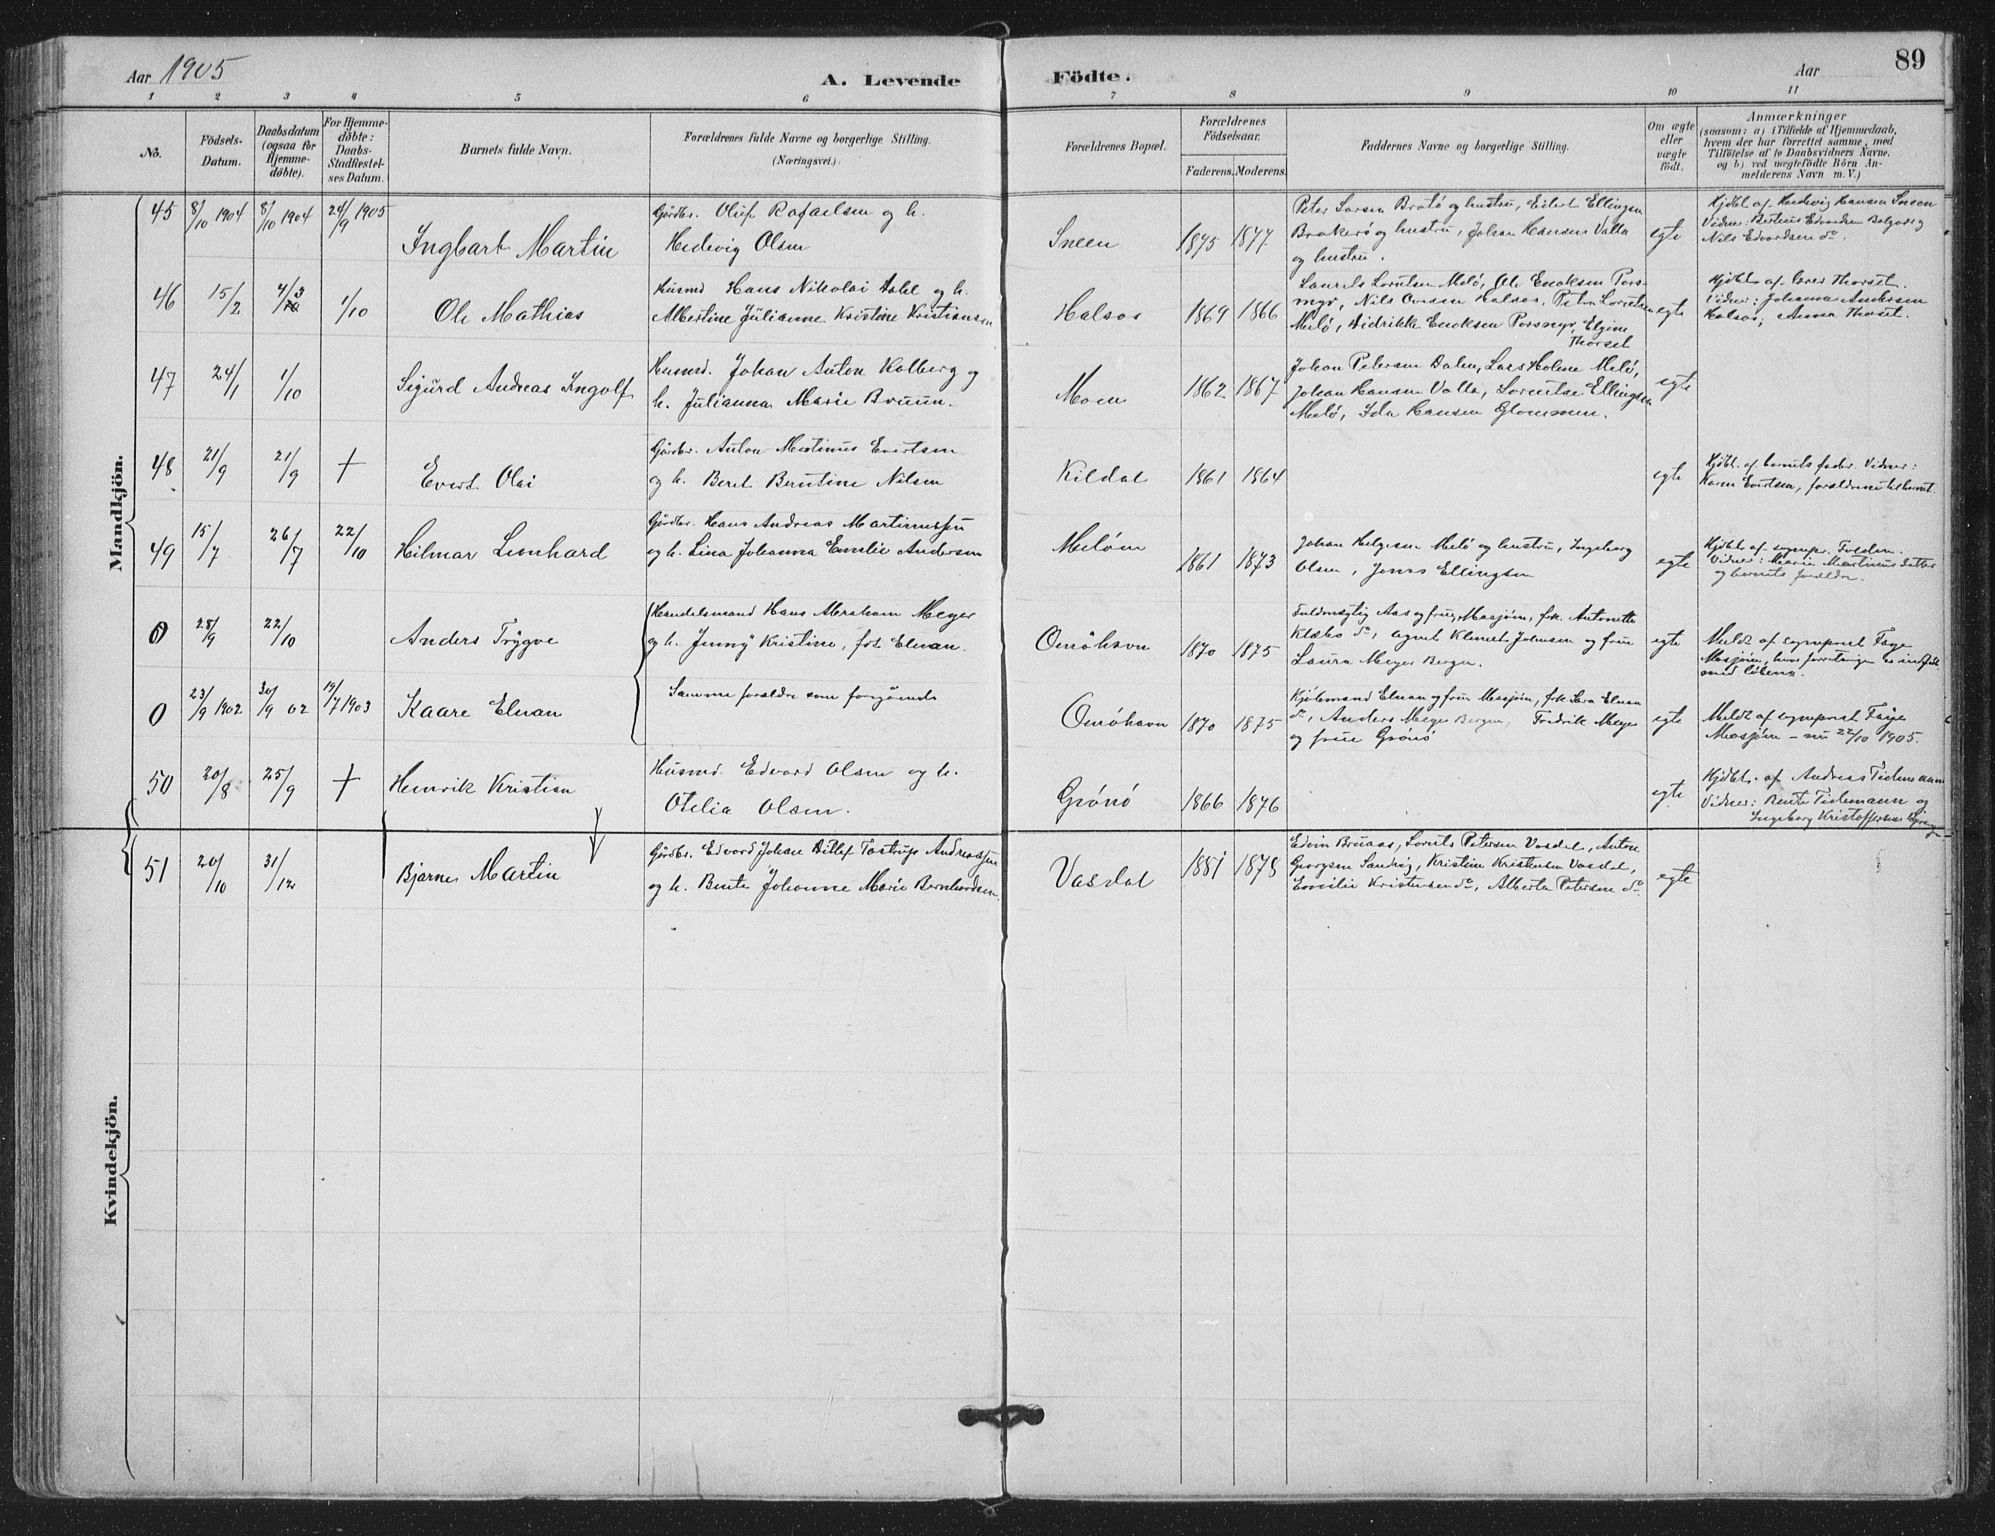 Aar 1905
A. Levende Födte.
Aar
89
1 2 3 4 5 6 7 8 9 10 11
No.
Födsels-Datum.
Daabsdatum (ogsaa for Hjemmedöbte).
For Hjemmedöbte: Daabs-Stadfestelses Datum.
Barnets fulde Navn.
Forældrenes fulde Navne og borgerlige Stilling. (Næringsvei.)
Forældrenes Bopæl.
Forældrenes Födselsaar.
Faderens. Moderens.
Faddernes Navne og borgerlige Stilling.
Om ægte eller uægte født.
Anmærkninger
(saasom: a) i Tilfælde af Hjemmedaab, hvem der har forrettet samme, med Tilföielse af to Daabsvidners Navne, og b) ved uægtefödte Börn Anmelderens Navn m. V.)
Mandkjön.
45 8/10 1904 8/10 1904 24/9 1905 Ingbart Martin
Gårdbr. Oluf Rafaelsen og h.
Hedevig Olsen
Sneen 1875 1877
Peter Larsen Bratø og hustru, Eilert Ellingsen
og hustru, Johan Hansen Valla
og hustru.
egte
Hjdbt. af Hedevig Hansen
Vidner: Edvardsen og
Nils Edvardsen do.
46 15/2 4/3 1/10 Ole Mathias
Husmd Hans Nikolai Dahl og h.
Albertine Julianne Kristine Kristiansen
Halsos 1869 1866
Laurits Lorntsen Melø, Ole Enoksen Porsmyr, Nils Halsos, Peter Lorntsen
Melø, Didrikke Enoksen Porsmyr, Elgine
Thorset
egte
Hjdbt. af Thorset.
Vidner: Johanna Andersen
Halsos, Anna Thorset.
47 24/1 1/10 Sigurd Andreas Ingolf
Husmd. Johan Anton Kolberg og
h. Julianna Marie Bruun.
Moen 1862 1867
Johan Petersen Dalen, Lars Holene Melø,
Johan Hansen Valla, Ellingsen
Melø, Ida Hansen Glommen.
egte
48 21/9 21/9 + Evert Olai
Gårdbr. Anton Martinus Evertsen
og h. Beret Berntine Nilsen
Kildal 1861 1864
egte
Hjdbt. af barnets fader. Vidner:
Karen Evertsen, forældrene til barnet.
49 15/7 26/7 22/10 Hilmar Lenhard
Gårdbr. Hans Andreas Martinussen
og h. Lina Johanna Emelie Andersen
Meløen 1861 1873
Johan Helgesen Melø og hustru, Ingeborg
Olsen, Jonas Ellingsen
egte
Hjdbt. af sognepr. Falden.
Vidner: Marie Martinusdatter
og barnets forældre.
0 28/9 22/10 Anders Trygve
Handelsmand Hans Abraham Meyer
og h. Jenny Kristine, født Elnan.
Omöhavn 1870 1875
Fuldmægtig Aas og frue, Mosjøen, frk. Antonette
Klæbo do, agent Klemet Johnsen og frue
Laura Meyer Bergen.
egte
Meldt af sognprest Faye
Mosjøen, hvor forretningen er indført
med løbeno.
0 23/9 1902 30/9 02 19/7 1903 Kaare Elnan
Samme forældre som foregående
Omöhavn 1870 1875
Kjöbmand Elnan og frue Mosjøen, frk. Sara Elnan
do, Anders Meyer Bergen, Fredrik Meyer
og frue Grönö
egte
Meldt af sognprest Faye
Mosjøen – nu 22/10 1905.
50 20/8 25/9 + Henrik Kristian
Husmd. Edvard Olsen og h.
Otelia Olsen.
Grönö 1866 1876
egte
Hjdbt. af Andreas Tidemann
Vidner: Bente Tidemann og
Ingeborg Kristoffersen
51 20/10 31/12 Bjarne Martin
Gårdbr. Edvard Johan Ditlef Tostrup Andreassen
og h. Bente Johanne Marie Bernhardsen.
Vasdal 1881 1878
Edvin Bruaas, Lornts Petersen Vasdal, Anton
Georgsen Sandvig, Kristine Kristensen Vasdal,
Emilie Kristensen do, Alberta Petersen do
egte
Kvindekjön.